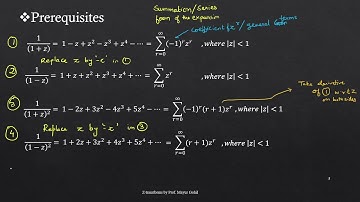 ❖Prerequisites
Summation/Series
form of the expansion
coefficient of z^r / general term
① 1/(1+z) = 1 − z + z² − z³ + z⁴ − ⋯ = ∑_{r=0}^{∞} (−1)^r z^r , where |z| < 1
Replace z by '-z' in ①
② 1/(1−z) = 1 + z + z² + z³ + z⁴ + ⋯ = ∑_{r=0}^{∞} z^r , where |z| < 1
③ 1/(1+z)² = 1 − 2z + 3z² − 4z³ + 5z⁴ − ⋯ = ∑_{r=0}^{∞} (−1)^r (r+1)z^r , where |z| < 1
Take derivative
of ① w.r.t z
on both sides
Replace z by '-z' in ③
④ 1/(1−z)² = 1 + 2z + 3z² + 4z³ + 5z⁴ + ⋯ = ∑_{r=0}^{∞} (r+1)z^r , where |z| < 1
Z-transforms by Prof. Mayur Gohil